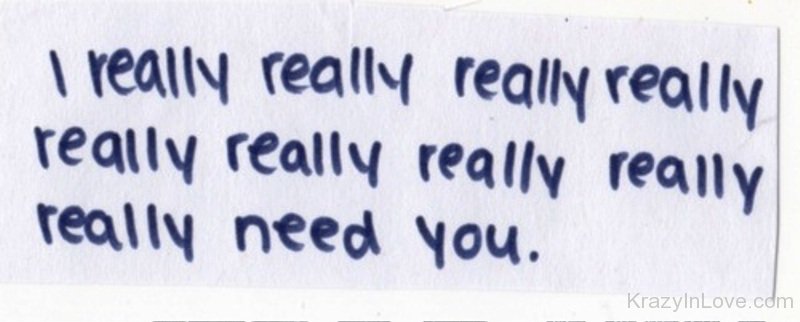 I really really really really
really really really really
really need you.
KrazyInLove.com